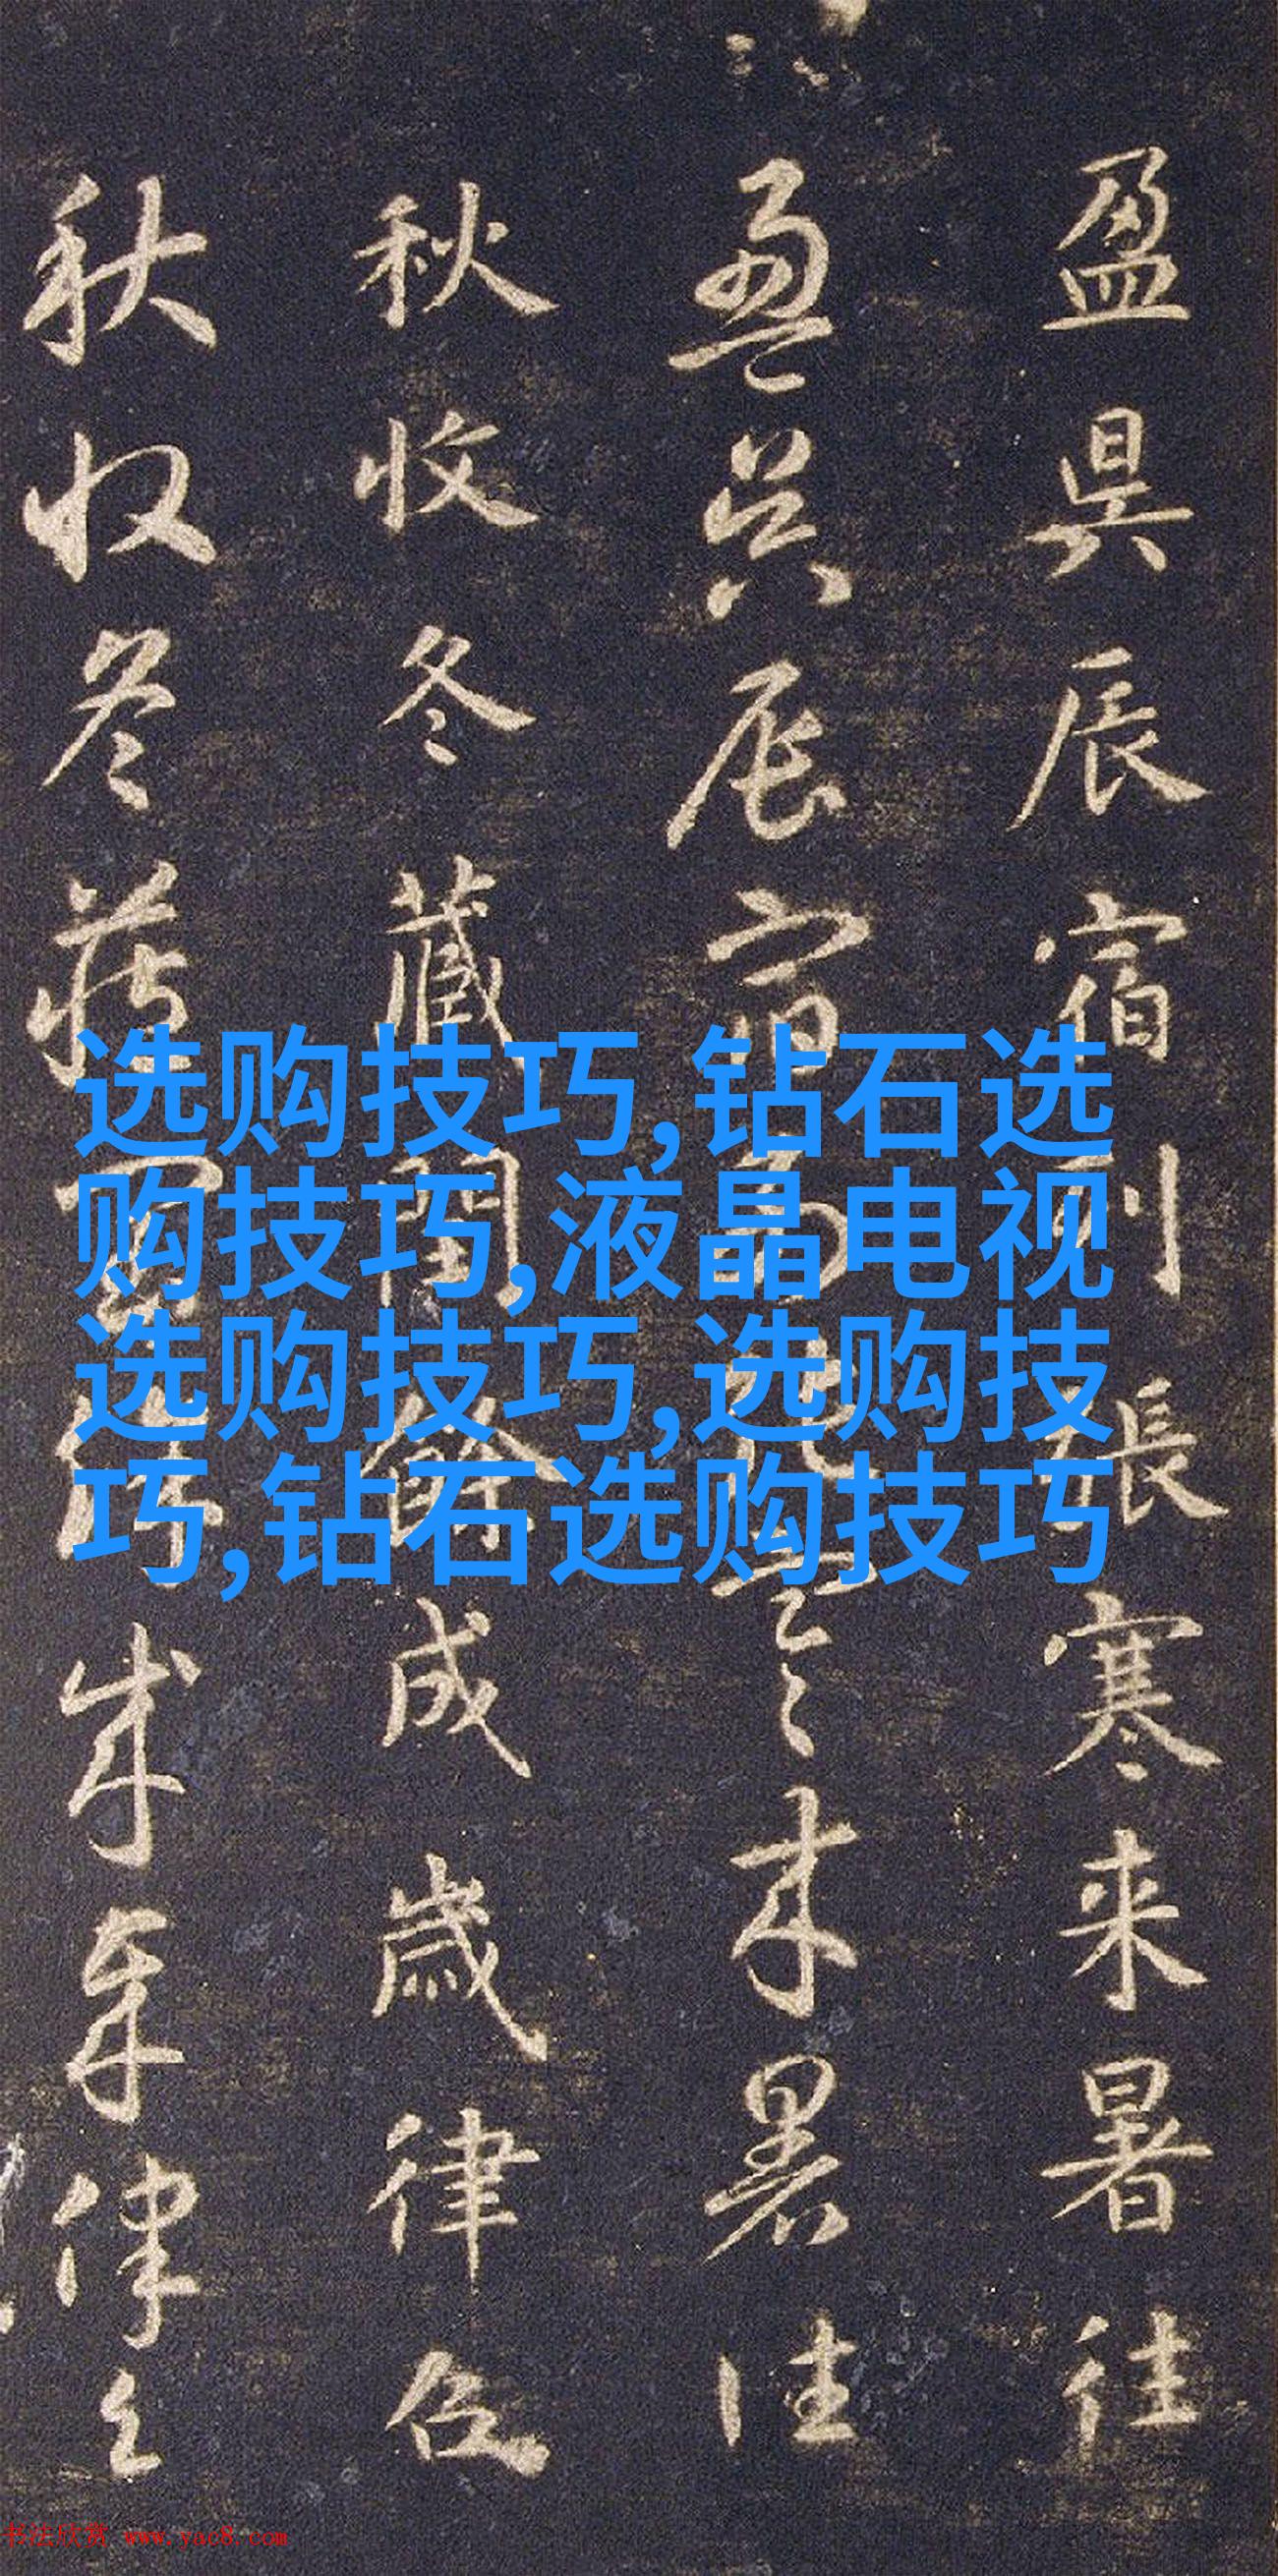 盈昃辰宿列張寒来暑往
盈昃辰宿列張寒来暑往
秋收冬藏閏餘成歲律呂
秋收冬藏閏餘成歲律呂
选购技巧,钻石选
购技巧,液晶电视
选购技巧,选购技
巧,钻石选购技巧
书法欣赏 www.yac8.com